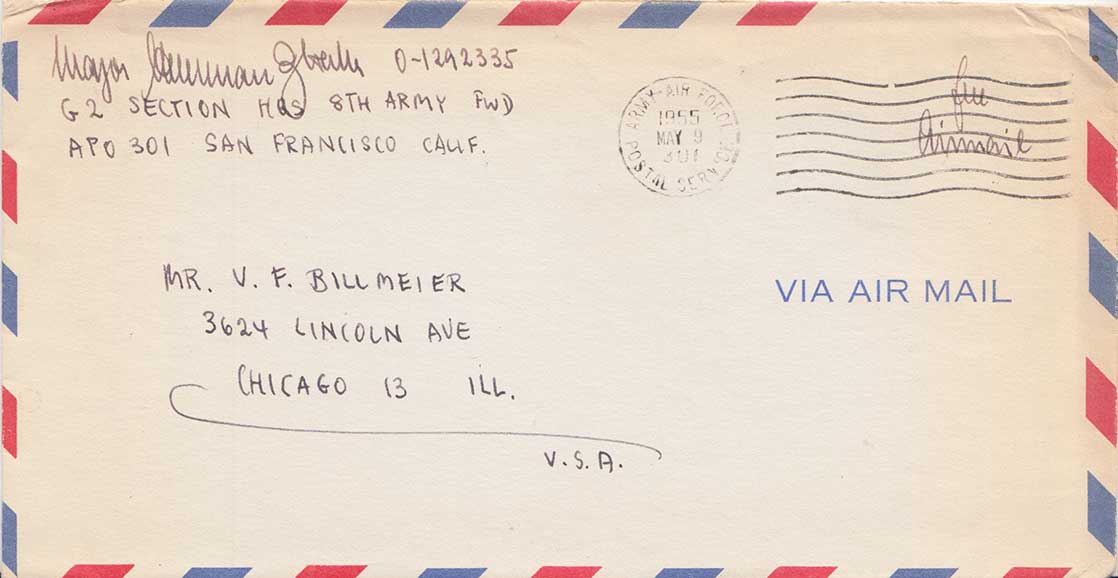 Major Herman 0-1292335
G2 SECTION HQS 8TH ARMY FWD
APO 301 SAN FRANCISCO CALIF.
ARMY-AIR FORCE
1955
MAY 9
301
POSTAL SERVICE
Free
Airmail
MR. V. F. BILLMEIER
3624 LINCOLN AVE
CHICAGO 13 ILL.
U.S.A.
VIA AIR MAIL